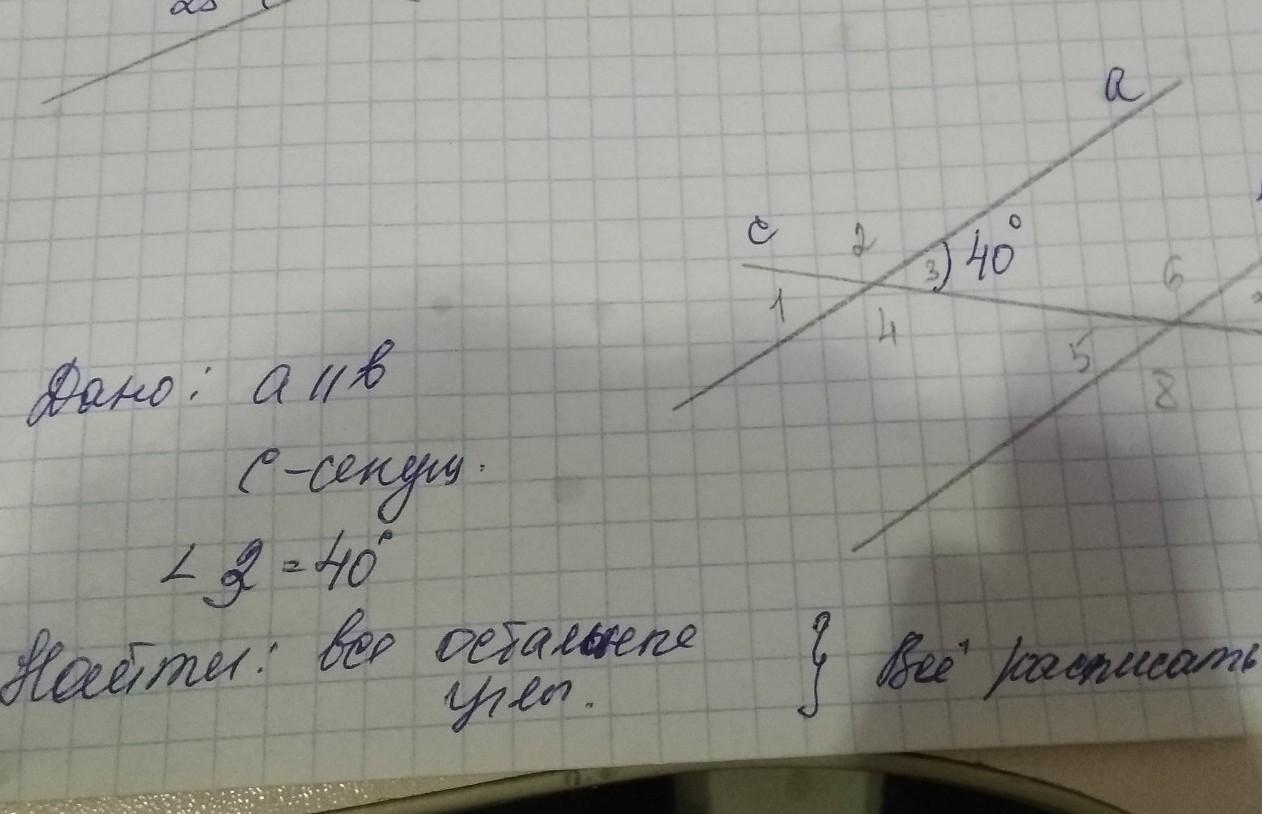 a
c 2
3 40°
6
1
4
5
8
Дано: a || b
c - секущ.
∠ 3 = 40°
Найти: все остальные } Всё расписать
углы.